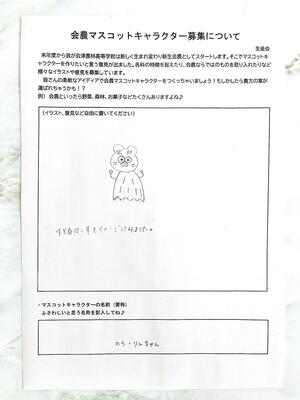 会農マスコットキャラクター募集について
生徒会
来年度から我が会津農林高等学校は新しく生まれ変わり新生会農としてスタートします。そこでマスコットキ
ャラクターを作りたいと言う意見が出ました。各科の特徴を捉えたり、会農ならではのものを取り入れたりなど
様々なイラストや意見を募集しています。
皆さんの柔軟なアイディアで会農マスコットキャラクターをつくっちゃいましょう！もしかしたら貴方の案が
選ばれちゃうかも！？
例）会農といったら野菜、森林、お菓子などたくさんありますよね♪
（イラスト、意見など自由に書いてください）
イメージしてみました。
・マスコットキャラクターの名前（愛称）
ふさわしいと思う名称を記入してね♪
のう・りんちゃん